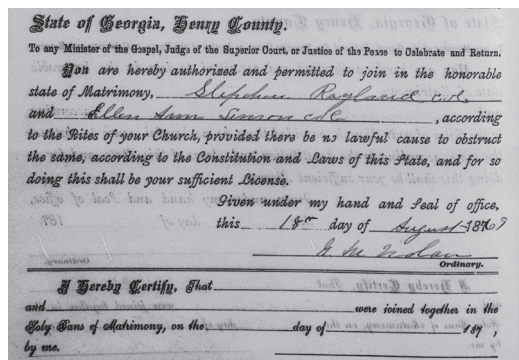 State of Georgia, Henry County.
To any Minister of the Gospel, Judge of the Superior Court, or Justice of the Peace to Celebrate and Return.
You are hereby authorized and permitted to join in the honorable
state of Matrimony, Stephen Ragland c.d.
and Ellen Ann Simon cd , according
to the Rites of your Church, provided there be no lawful cause to obstruct
the same, according to the Constitution and Laws of this State, and for so
doing this shall be your sufficient License.
Given under my hand and Seal of office,
this 18th day of August 187
Nolan
Ordinary.
I Hereby Certify, That
and were joined together in the
Holy Bans of Matrimony, on the day of 187 ,
by me.